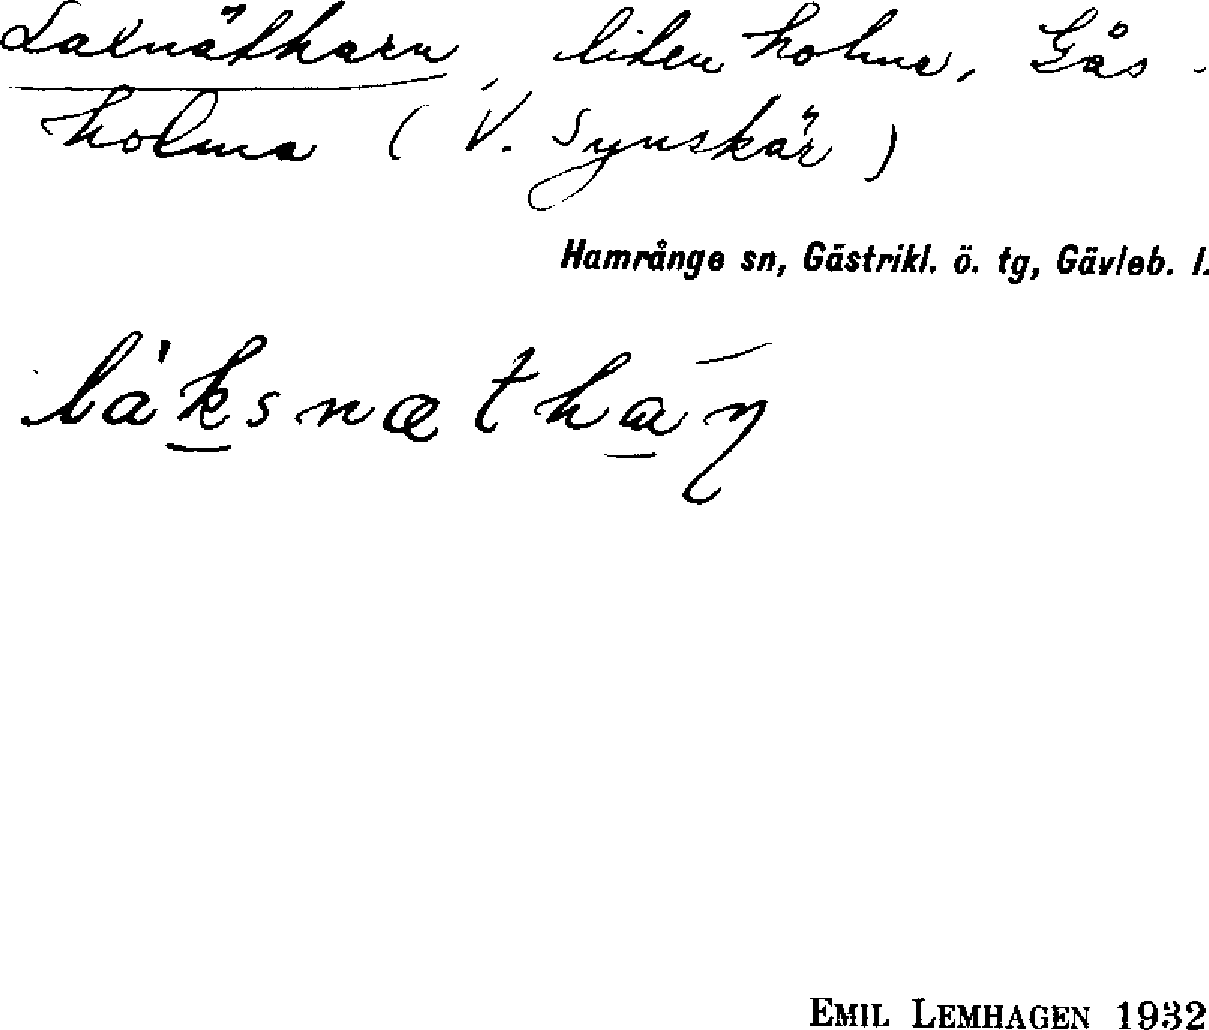 Laxnätharn, liten holme, Gås-
holma (V. Synskär)
Hamrånge sn, Gästrikl. ö. tg, Gävleb. l.
là'ksnætháꞃ
EMIL LEMHAGEN 1932